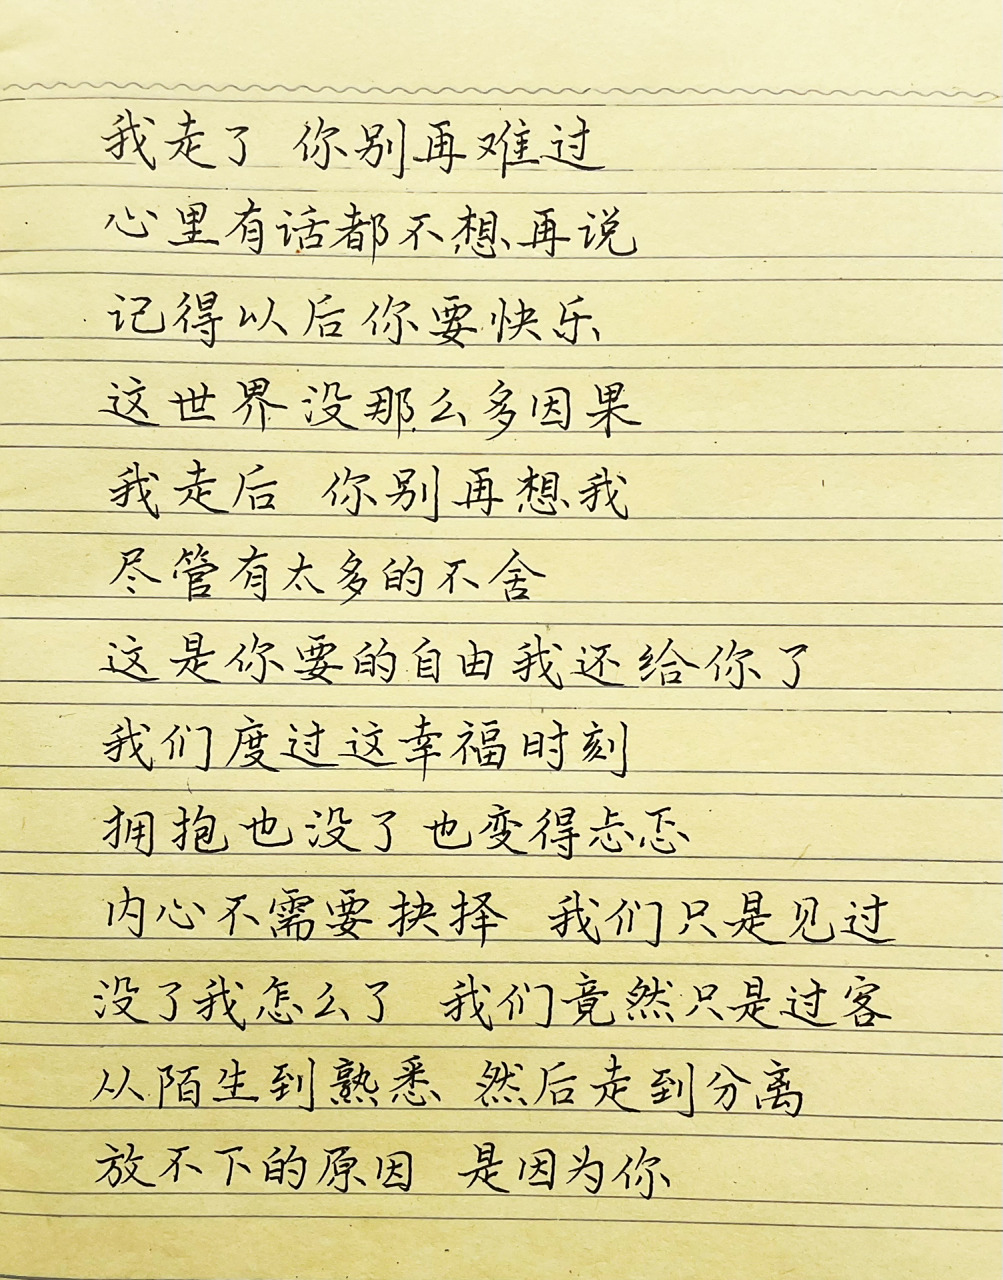 我走了 你别再难过
心里有话都不想再说
记得以后你要快乐
这世界没那么多因果
我走后 你别再想我
尽管有太多的不舍
这是你要的自由我还给你了
我们度过这幸福时刻
拥抱也没了也变得忐忑
内心不需要抉择 我们只是见过
没了我怎么了 我们竟然只是过客
从陌生到熟悉 然后走到分离
放不下的原因 是因为你